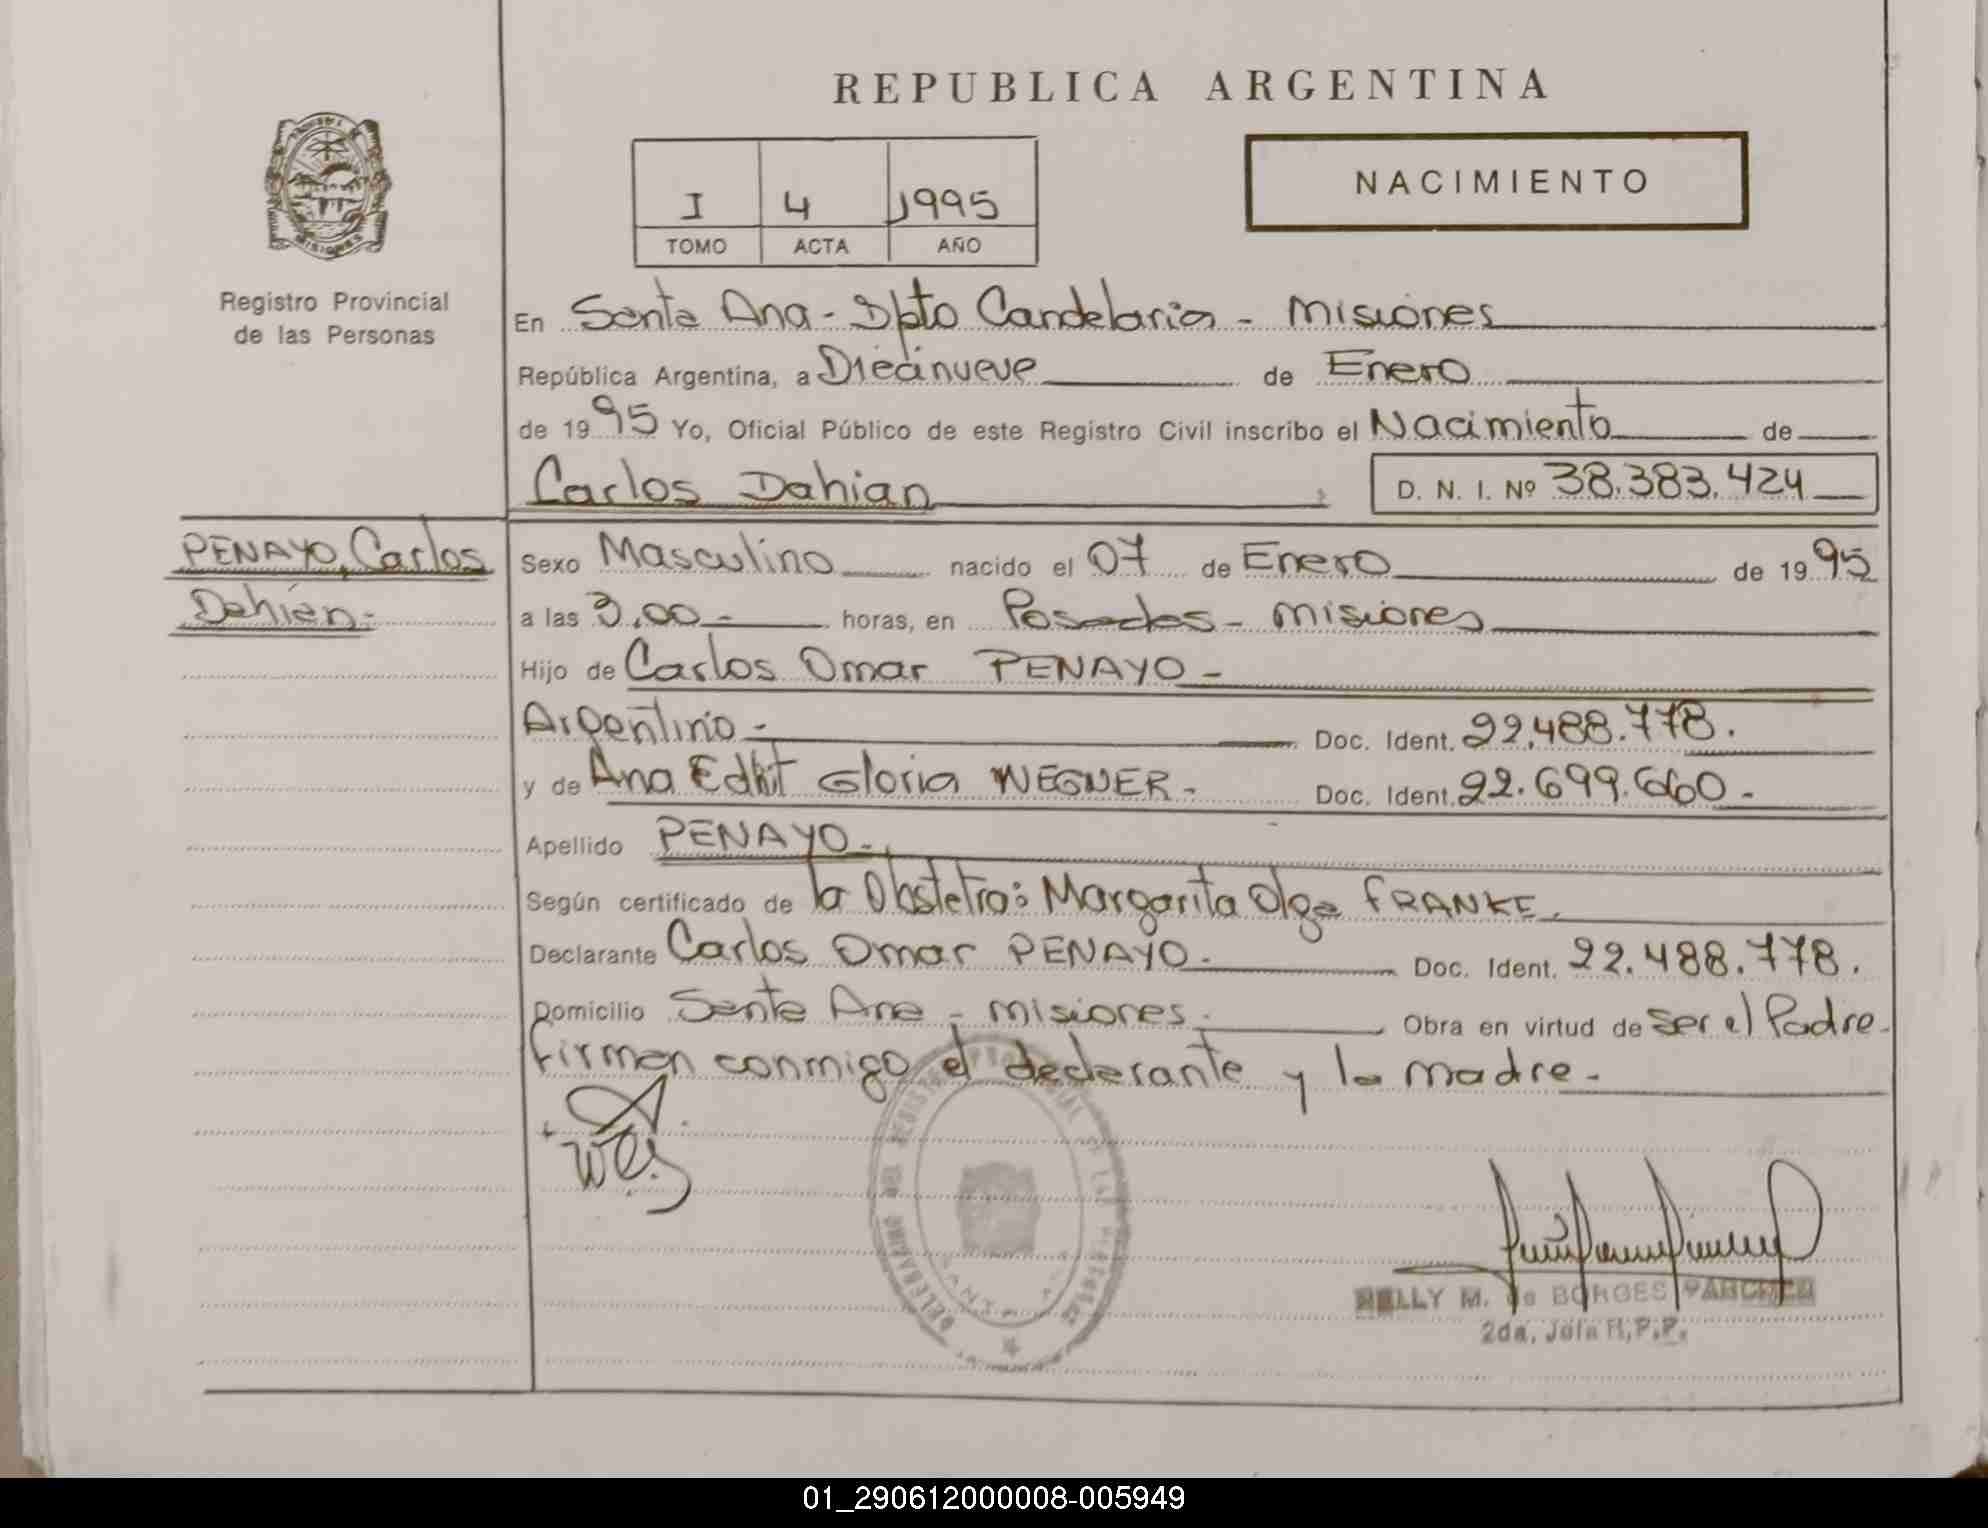 REPUBLICA ARGENTINA
NACIMIENTO
I 4 1995
TOMO ACTA AÑO
Registro Provincial
de las Personas
En Santa Ana - Dpto Candelaria - Misiones
República Argentina, a Diecinueve de Enero
de 1995 Yo, Oficial Público de este Registro Civil inscribo el Nacimiento de
Carlos Dahian D. N. I. Nº 38.383.424
PENAYO, Carlos
Dahian-
Sexo Masculino nacido el 07 de Enero de 1995
a las 3,00 - horas, en Posadas - Misiones
Hijo de Carlos Omar PENAYO -
Argentino - Doc. Ident. 22.488.778.
y de Ana Edhit Gloria WEGNER - Doc. Ident. 22.699.660 -
Apellido PENAYO -
Según certificado de la Obstetra: Margarita Olga FRANKE.
Declarante Carlos Omar PENAYO. Doc. Ident. 22.488.778.
Domicilio Santa Ana - Misiones. Obra en virtud de ser el Padre.
Firman conmigo el declarante y la madre.
NELLY M. de BORGES
2da. Jefa R.P.P.
01_290612000008-005949